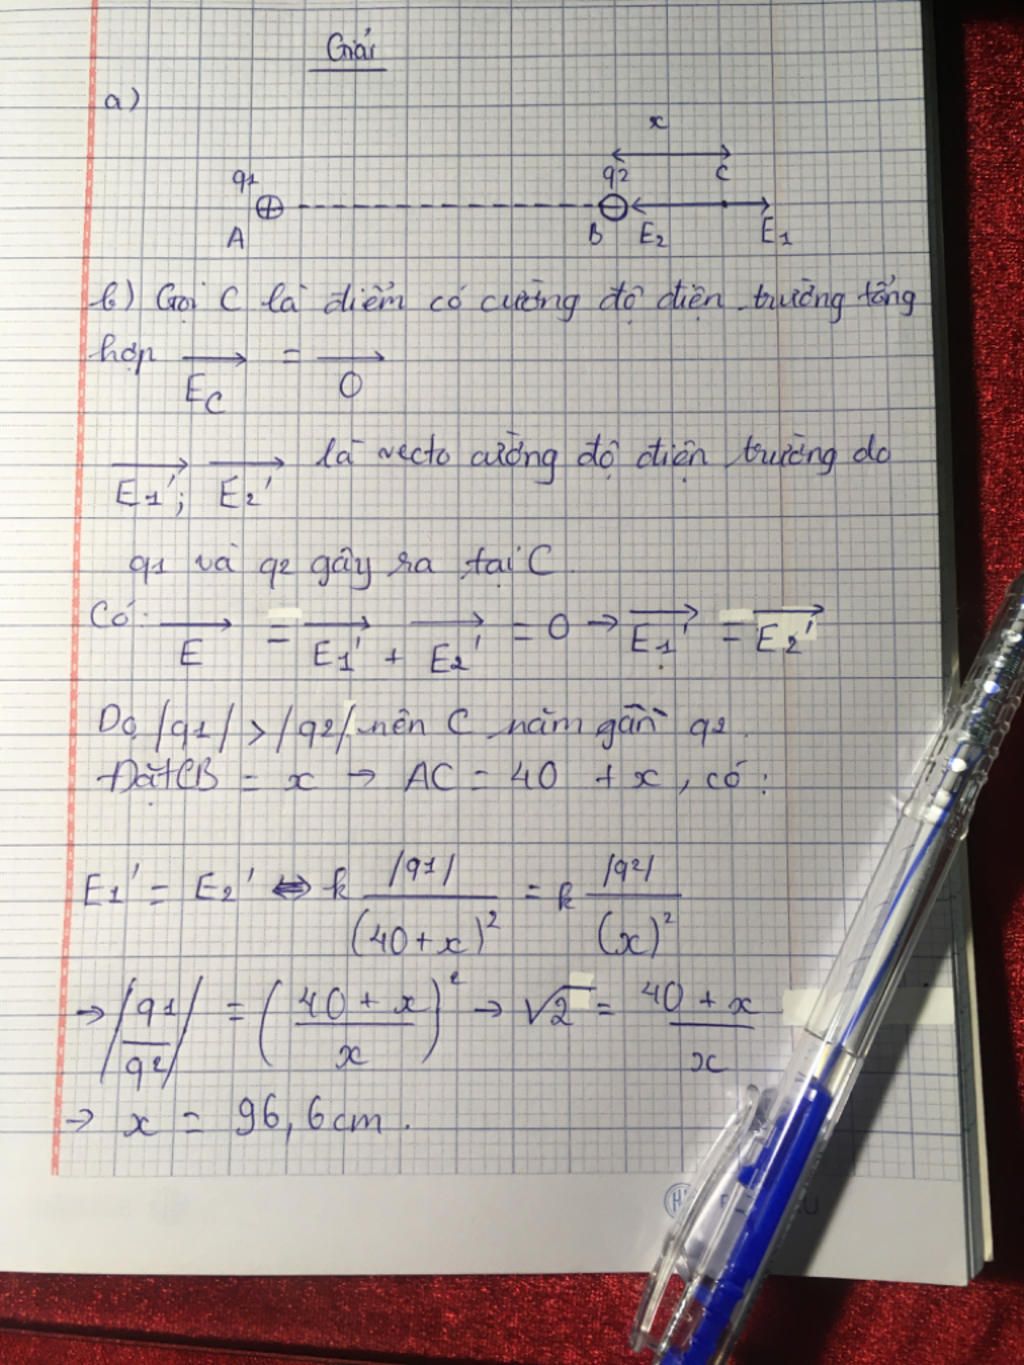 Giải
a)
x
q1 q2 C
A B E2 E1
b) Gọi C là điểm có cường độ điện trường tổng
hợp \overrightarrow{E_C} = \overrightarrow{0}
\overrightarrow{E_1'}; \overrightarrow{E_2'} là vecto cường độ điện trường do
q1 và q2 gây ra tại C.
Có: \overrightarrow{E} = \overrightarrow{E_1'} + \overrightarrow{E_2'} = 0 → \overrightarrow{E_1'} = \overrightarrow{E_2'}
Do |q1| > |q2| nên C nằm gần q2.
Đặt CB = x → AC = 40 + x, có:
E1' = E2' ⇔ k |q1| / (40+x)² = k |q2| / (x)²
→ |q1/q2| = ((40 + x)/x)² → √2 = (40 + x)/x
→ x = 96,6cm.